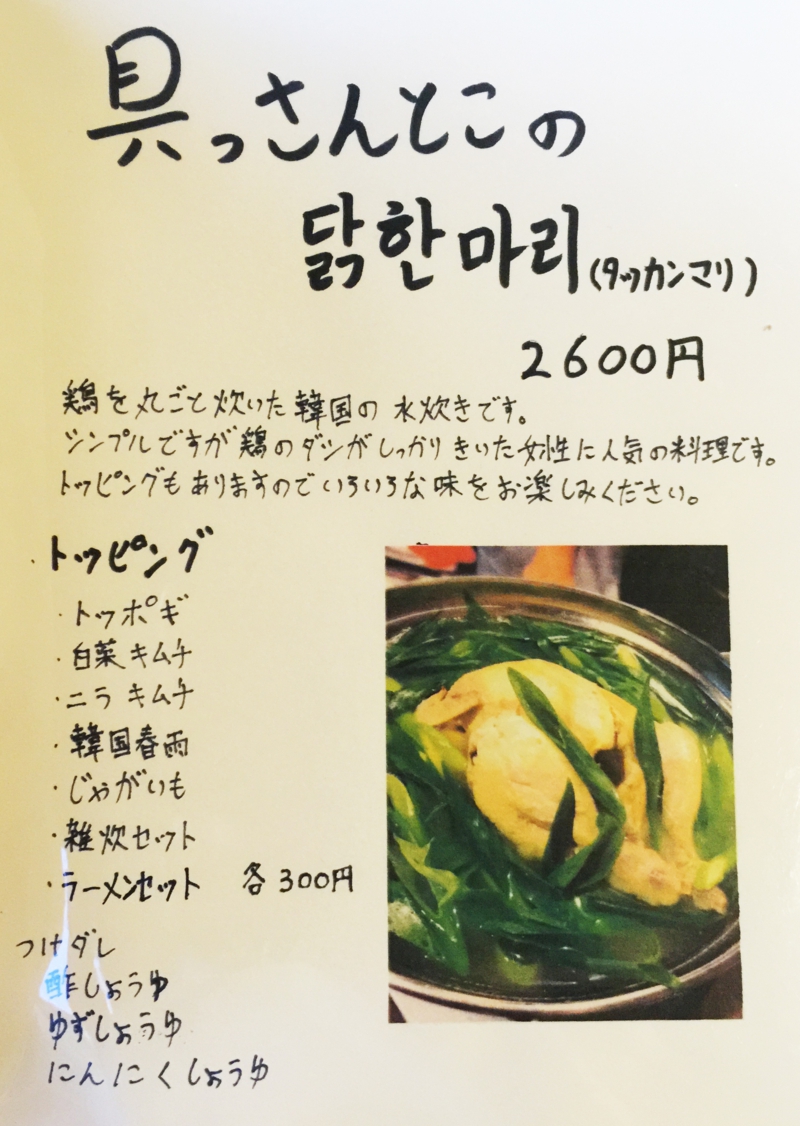 具っさんとこの
닭한마리(タッカンマリ)
2600円
鶏を丸ごと炊いた韓国の水炊きです。
シンプルですが鶏のダシがしっかりきいた女性に人気の料理です。
トッピングもありますのでいろいろな味をお楽しみください。
・トッピング
・トッポギ
・白菜キムチ
・ニラキムチ
・韓国春雨
・じゃがいも
・雑炊セット
・ラーメンセット 各300円
つけダレ
酢しょうゆ
ゆずしょうゆ
にんにくしょうゆ